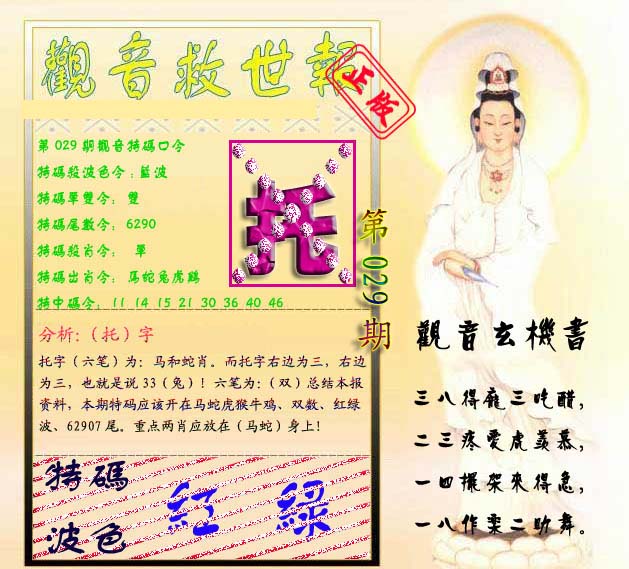 觀音救世報
正版
第029期觀音特碼口令
特碼殺波色令:藍波
特碼單雙令: 雙
特碼尾數令: 6290
特碼殺肖令: 單
特碼出肖令: 馬蛇兔虎鷄
特中碼令: 11 14 15 21 30 36 40 46
托
第029期
分析:(托)字
托字(六笔)为:马和蛇肖。而托字右边为三,右边
为三,也就是说33(兔)!六笔为:(双)总结本报
资料,本期特码应该开在马蛇虎猴牛鸡、双数、红绿
波、62907尾。重点两肖应放在(马蛇)身上!
特碼
波色
紅 綠
觀音玄機書
三八得龐三吃醋,
二三疼愛虎羨慕,
一四擺架來得急,
一八作樂二助舞。